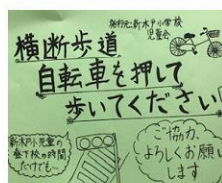 発行元:新木戸小学校
児童会
横断歩道
自転車を押して
歩いてください!
新木戸小児童の
登下校の時間
だけでも…
ご協力、
よろしくお願い
します